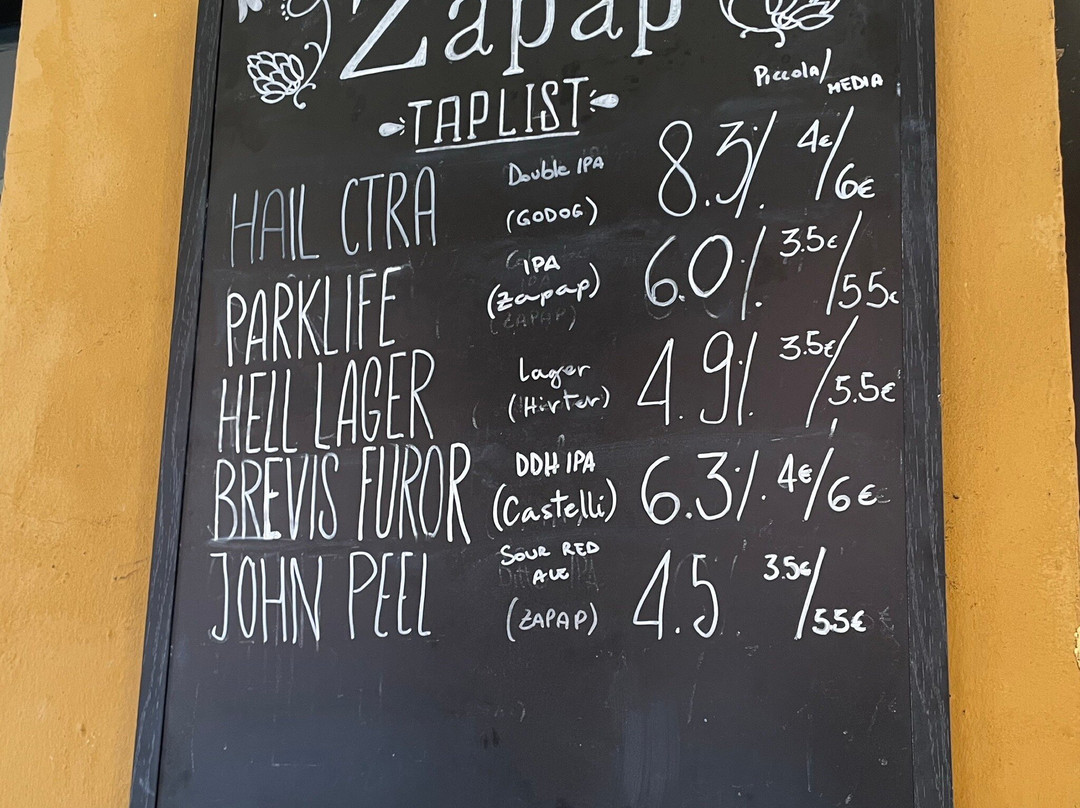 Zapap
TAPLIST
Piccola/MEDIA
HAIL CTRA Double IPA (GODOG) 8.5% 4€/6€
PARKLIFE IPA (Zapap) 6.0% 3.5€/55€
HELL LAGER Lager (Hirter) 4.9% 3.5€/5.5€
BREVIS FUROR DDH IPA (Castelli) 6.3% 4€/6€
JOHN PEEL SOUR RED ALE (ZAPAP) 4.5 3.5€/55€